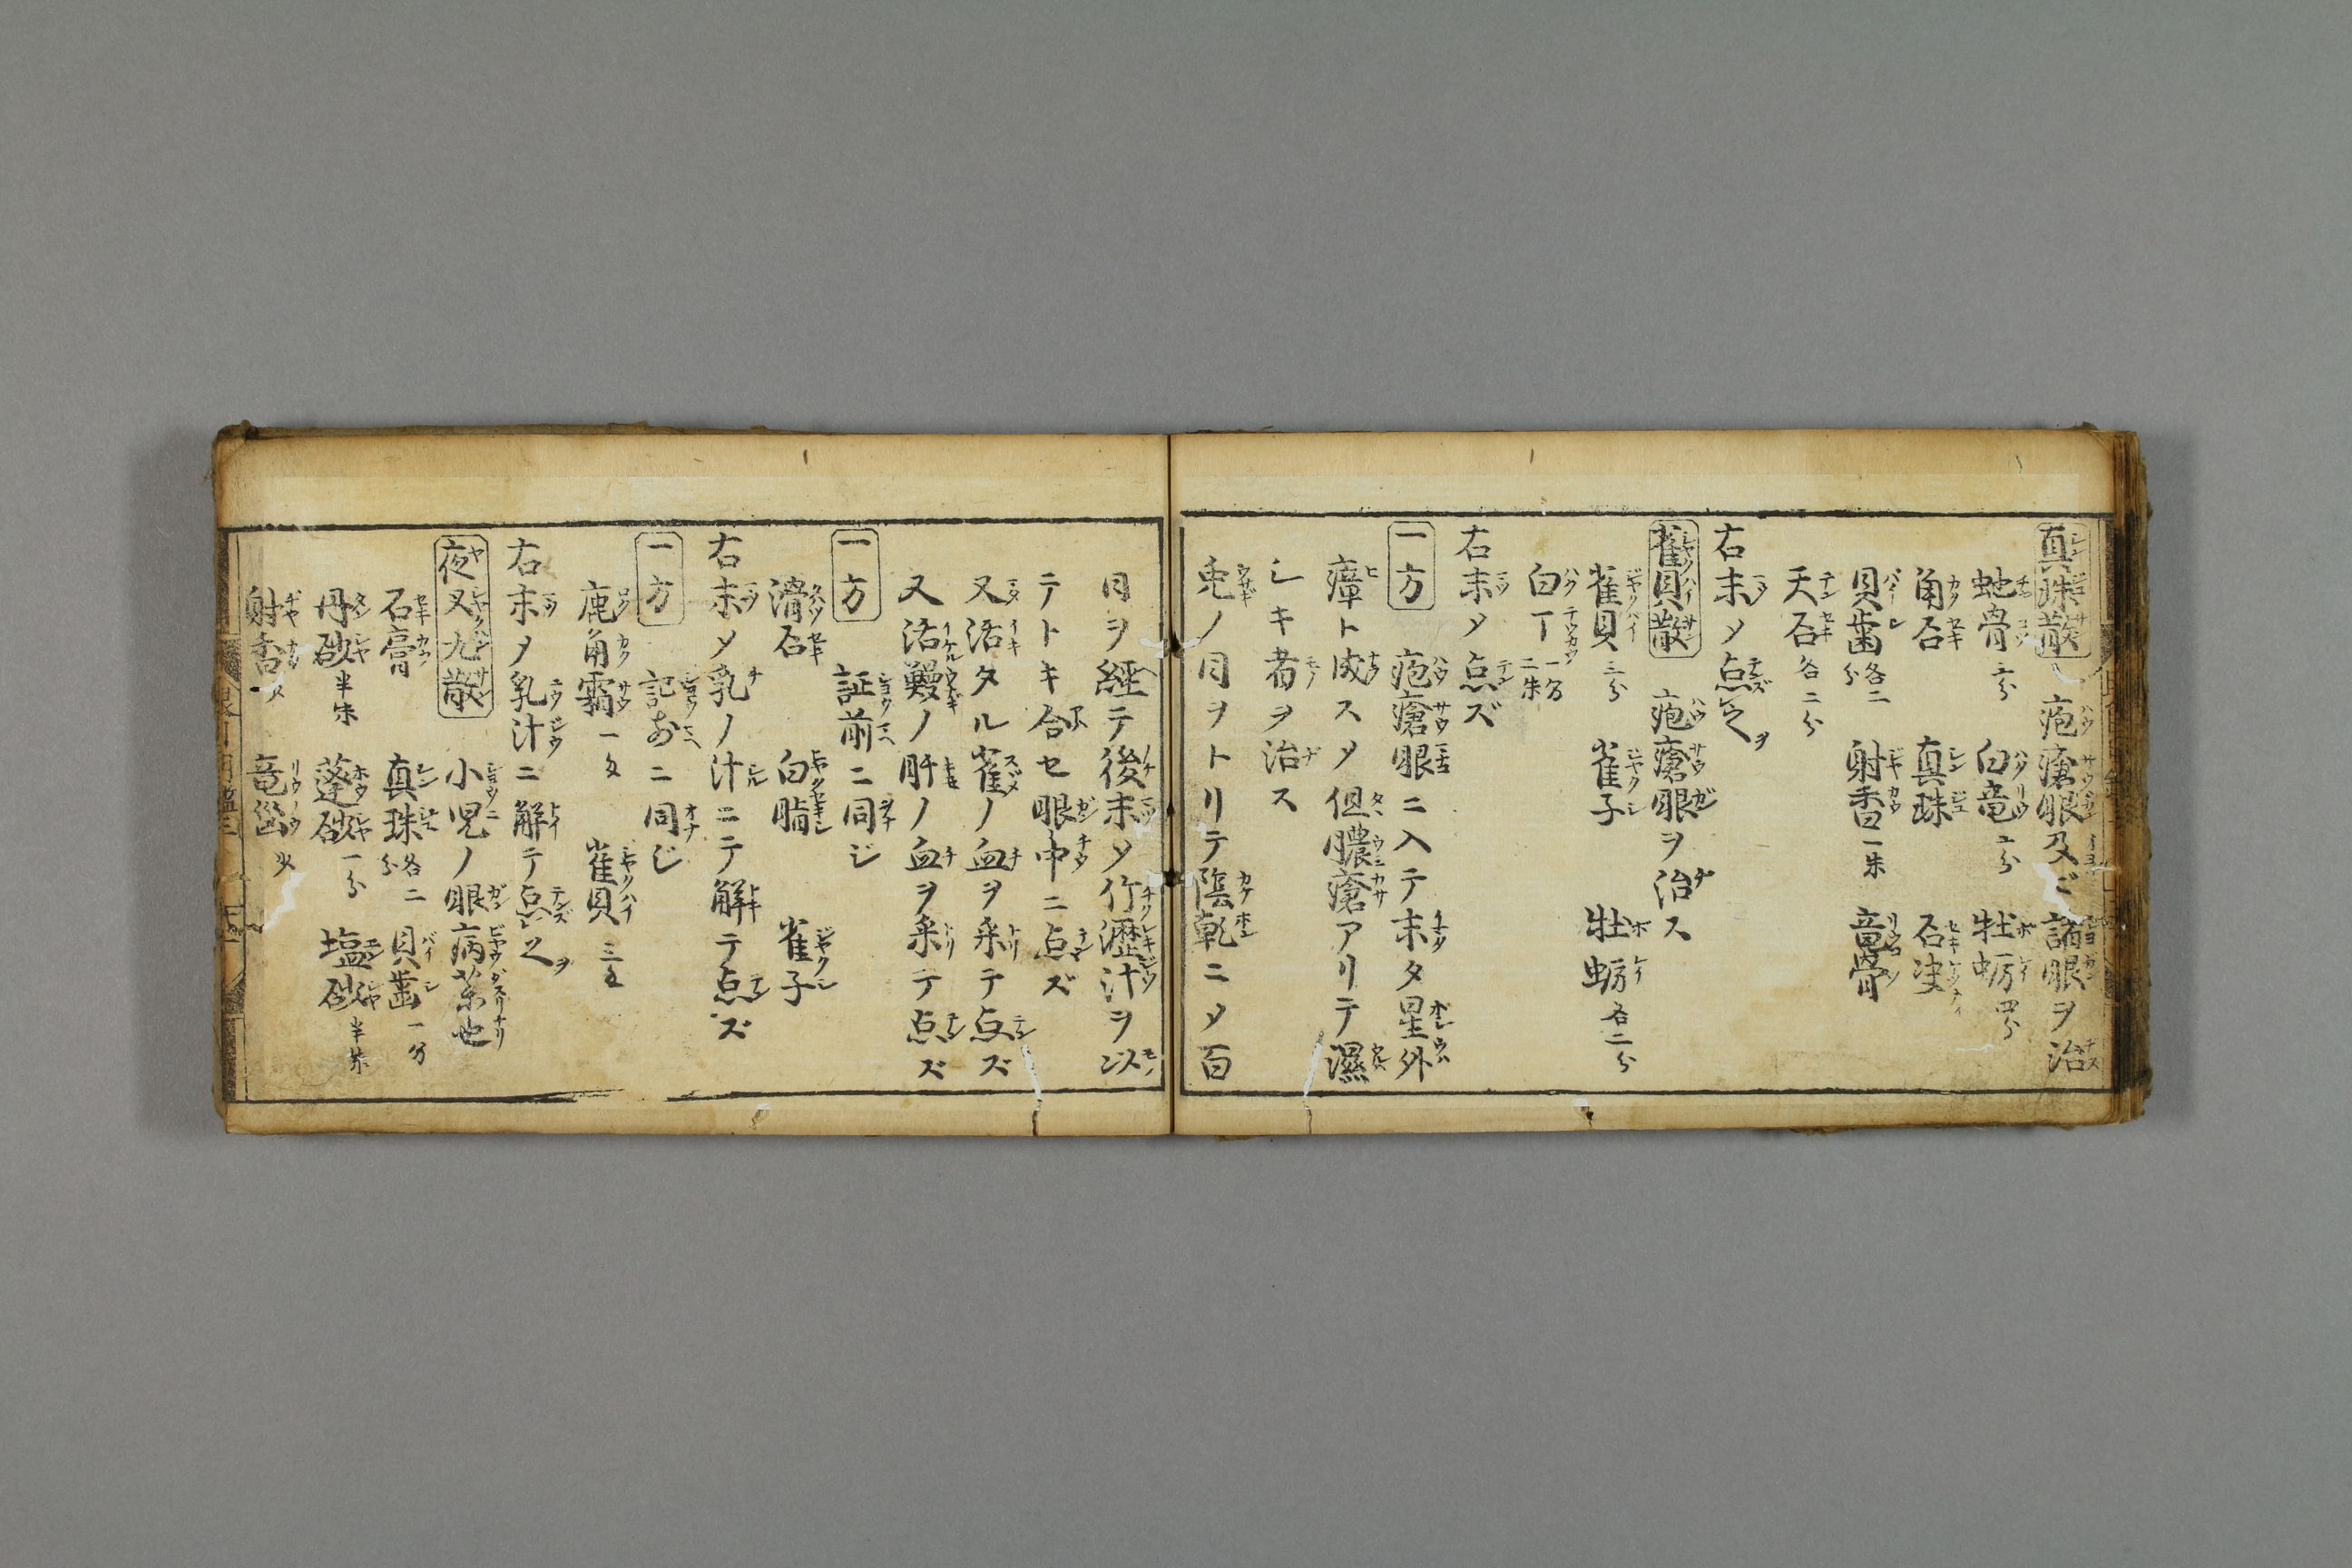 真珠散 疱瘡眼及ビ諸眼ヲ治
蚰骨二分 白竜二分 牡蛎四分
角石 真珠 石决
貝歯各二分 射香一朱 竜骨
天石各二分
右末メ点ズ之ヲ
雀貝散 疱瘡眼ヲ治ス
雀貝三分 雀子 牡蛎各二分
白丁一分二朱
右末メ点ズ
一方 疱瘡眼ニ入テ未タ星外
瘴ト成スメ但膿瘡アリテ濕
シキ者ヲ治ス
兎ノ目ヲトリテ陰乾ニメ百
日ヲ經テ後末メ竹瀝汁ヲ以
テトキ合セ眼中ニ点ズ
又活タル雀ノ血ヲ采テ点ズ
又活鰻ノ肝ノ血ヲ采テ点ズ
一方 証前ニ同ジ
滑石 白腊 雀子
右末メ乳ノ汁ニテ解テ点ズ
一方 記前ニ同ジ
鹿角霜一匁 雀貝三匁
右末メ乳汁ニ解テ点ズ之ヲ
夜叉九散 小児ノ眼病薬也
石膏 真珠各二分 貝歯一分
丹砂半朱 蓬砂一分 塩砂半朱
射香少 竜脳少